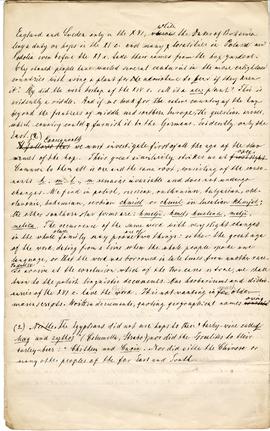 England and Sweden only in the XVI, while the Duke of Mazovia
levys duty on hops in the XI c. and many localities in Poland and
Russia even before the XI c. have their names from the hop garden.
Why should people have waited several centuries in the more enlightened
countries with using a plant for the admixture to beer if they knew
it? Why did the west botany of the XIV c. call it a new plant? This is
evidently a riddle. And if we look for the native country of the hop
beyond the frontiers of middle and northern Europe, the question arises,
which country could furnish it to the Germans. Evidently only the
East. (2) Consequently
we must investigate first of all the age of the slav
names of the hop. Their great similarity strikes us at
Common to them all is one and the same root, consisting of the conso-
nants
changes. We find in polish, russian, ruthenian, bulgarian, old-
slavonic, bohemian, serbian chmiel or chmel in Croatian
the other southern slav forms are:
The occurrence of the same word with very slight changes
in the whole family may prove two things: either the great age
of the word dating from a time when the whole people spoke one
language, or that the word was borrowed in late times from another race.
To arrive at the conclusion which of the two cases is done, we shall
turn to the polish linguistic documents. Our herbariums and dictio-
naries of the XVI c. have the word. It is not wanting in older
manuscripts. Written documents, quoting geographical names
(2) Neither the Egyptians did not use hops to their barley-wine called
and zythos (Columella, Strabo) nor did the Greeks to their
barley-beer: Nor did either the Chinese or
many other peoples of the far East and South.